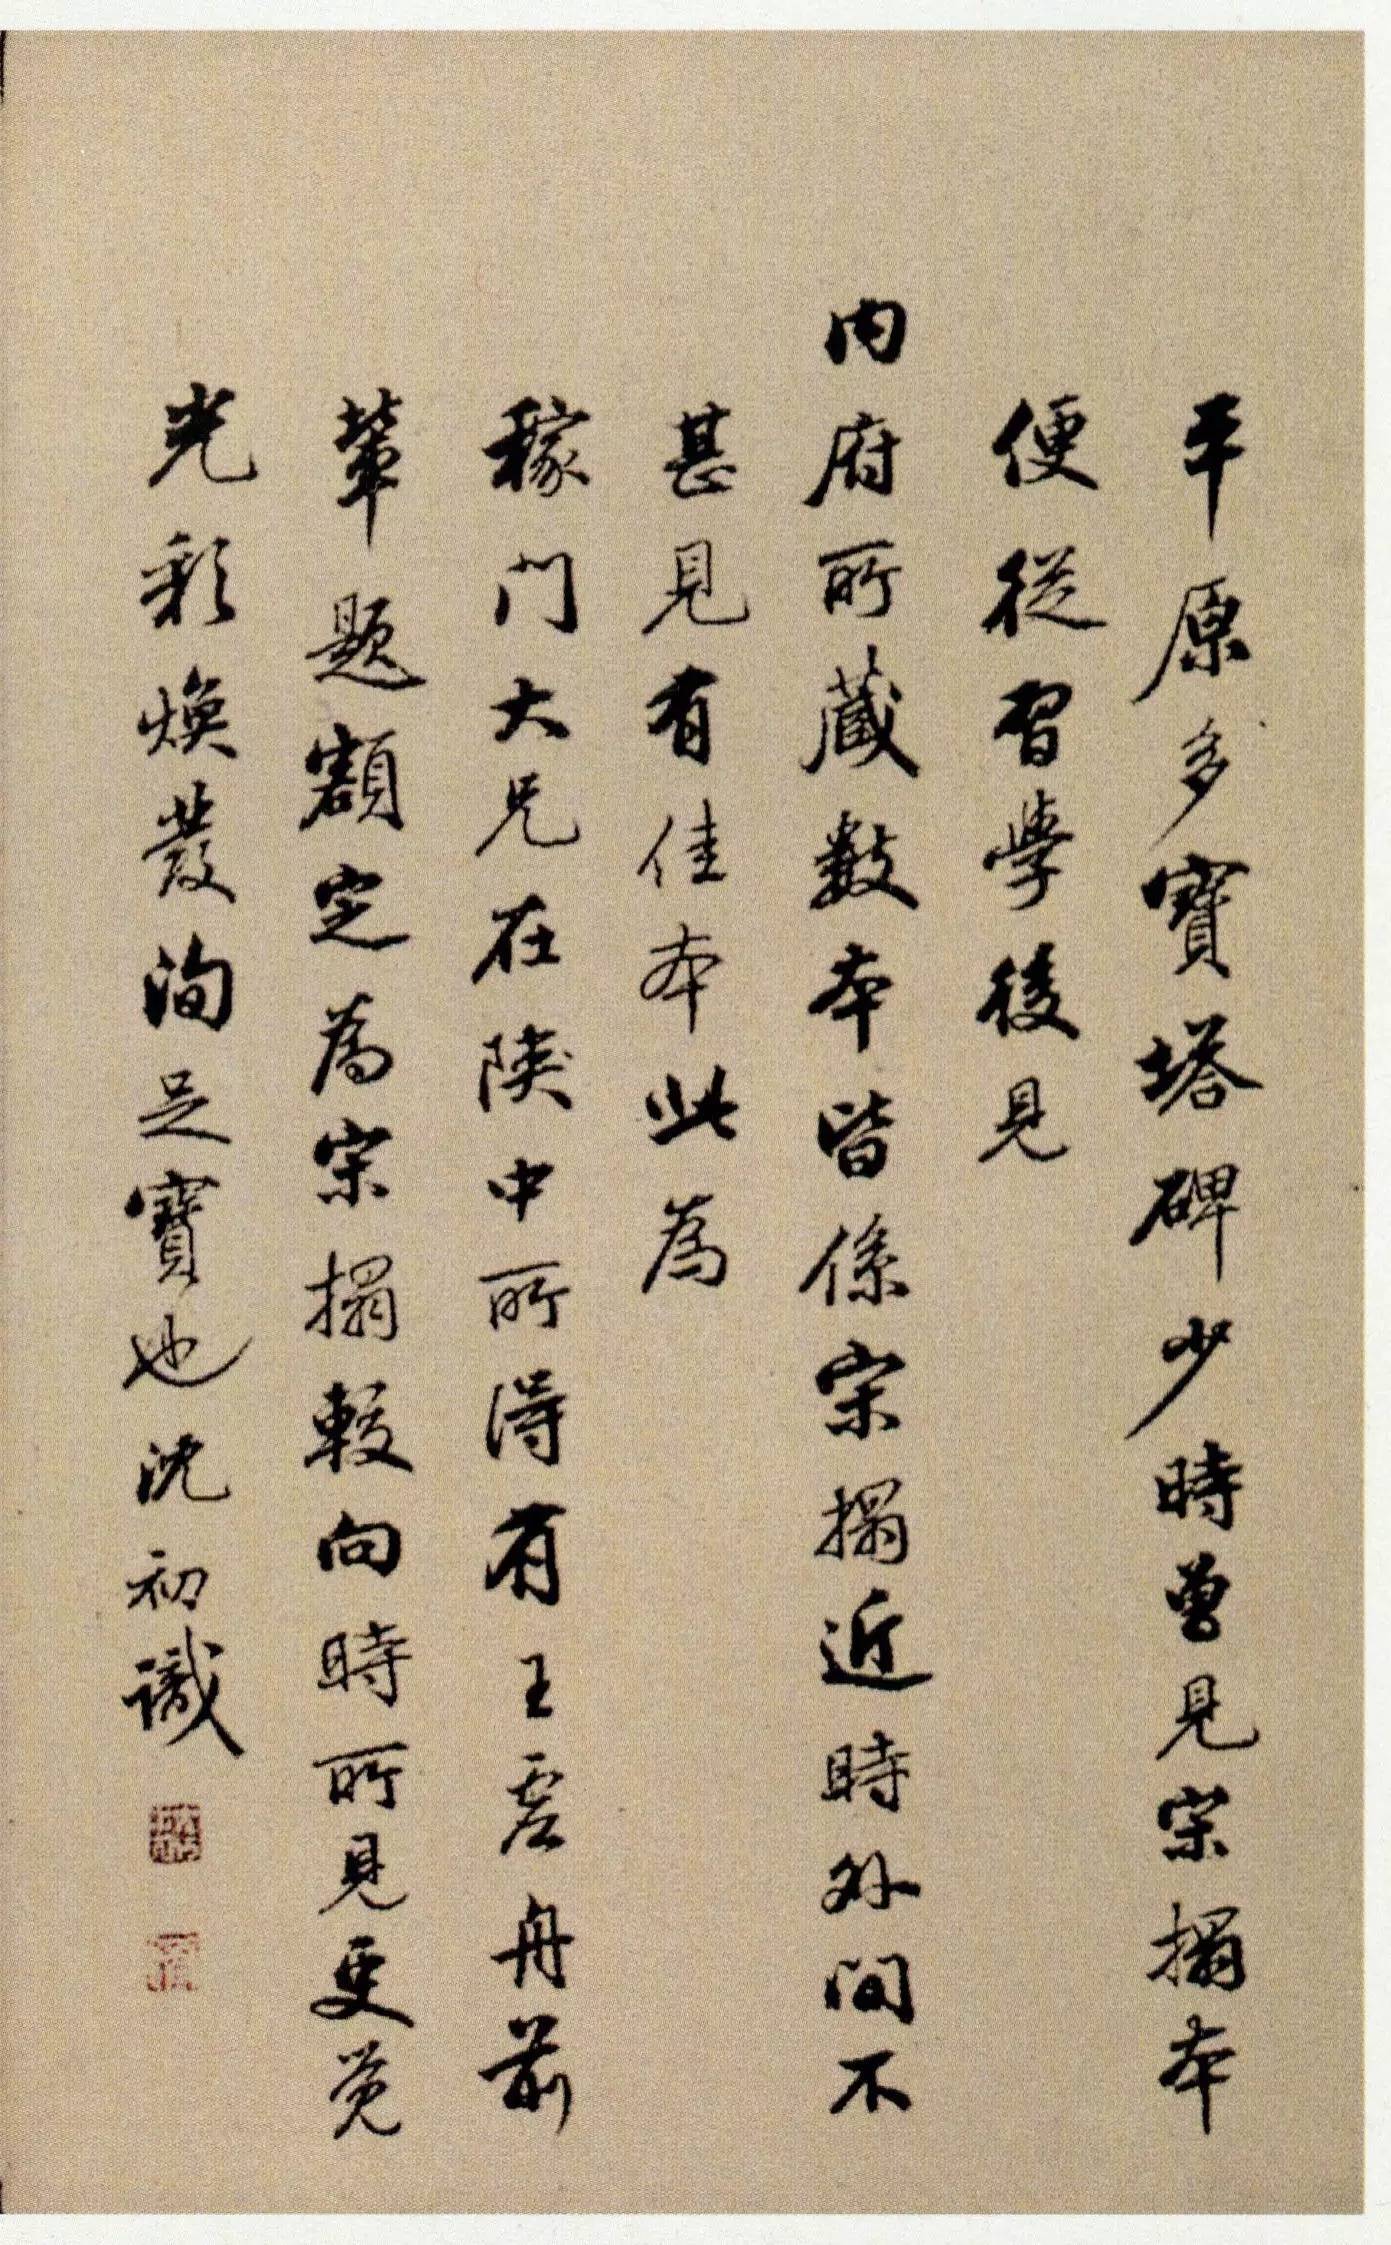 平原多寶塔碑少時曾見宗搨本
便從習學後見
内府所藏數本皆係宗搨近時外间不
甚見有佳本此為
稼门大兄在陝中所得有王虛舟前
輩題額定為宗搨較向時所見更覺
光彩煥發洵足寶也沈初識